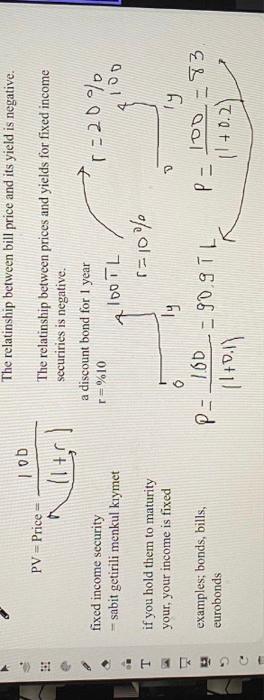 The relatinship between bill price and its yield is negative.
PV = Price = 100
(1+r)
The relatinship between prices and yields for fixed income
securiries is negative.
fixed income security
= sabit getirili menkul kıymet
if you hold them to maturity
your, your income is fixed
examples; bonds, bills,
eurobonds
a discount bond for 1 year
r = %10
100 TL
r=10%
0 1y
P= 100 = 90.9 TL
(1+0.1)
r=20%
100
0 1y
P= 100 = 83
(1+0.2)
T